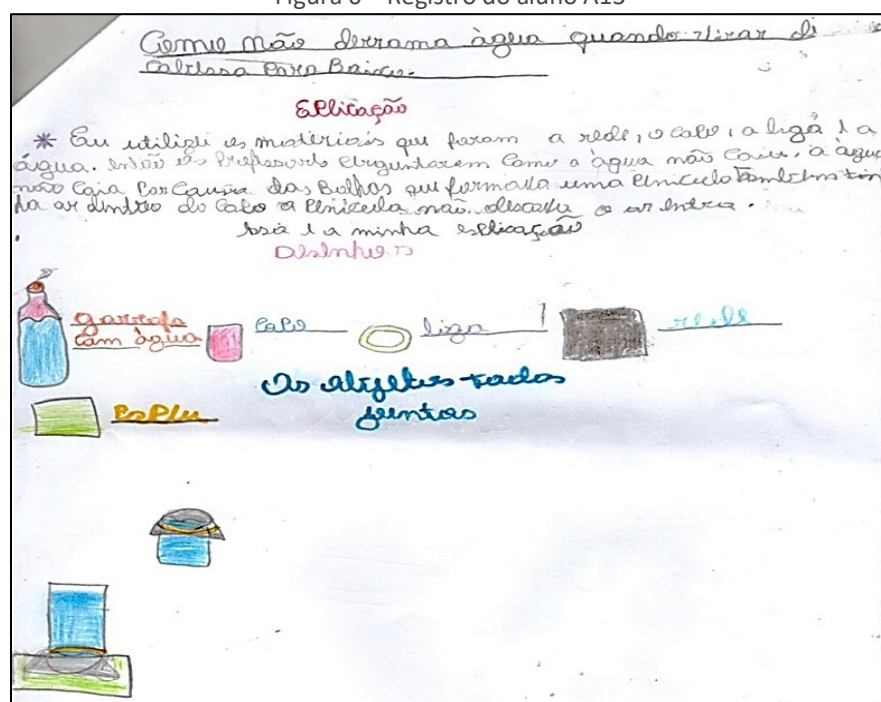 Figura 6 – Registro do aluno A13
Como não derrama àgua quando virar di
cabessa Para Baixo.
EPlicação
* Eu utilizei os materiais que foram a rede, o copo, a liga e a
água. então os Professores perguntaram Como a àgua não Caiu, a àgua
não Caia Por Causa das Bolhas que formava uma também tin
ha ar dentro do Copo a não deixava o ar entra.
é a minha esplicação
Desenhos
garrafa
Com àgua
CoPo
liga
rede
Os objetos todos
juntos
PaPeu